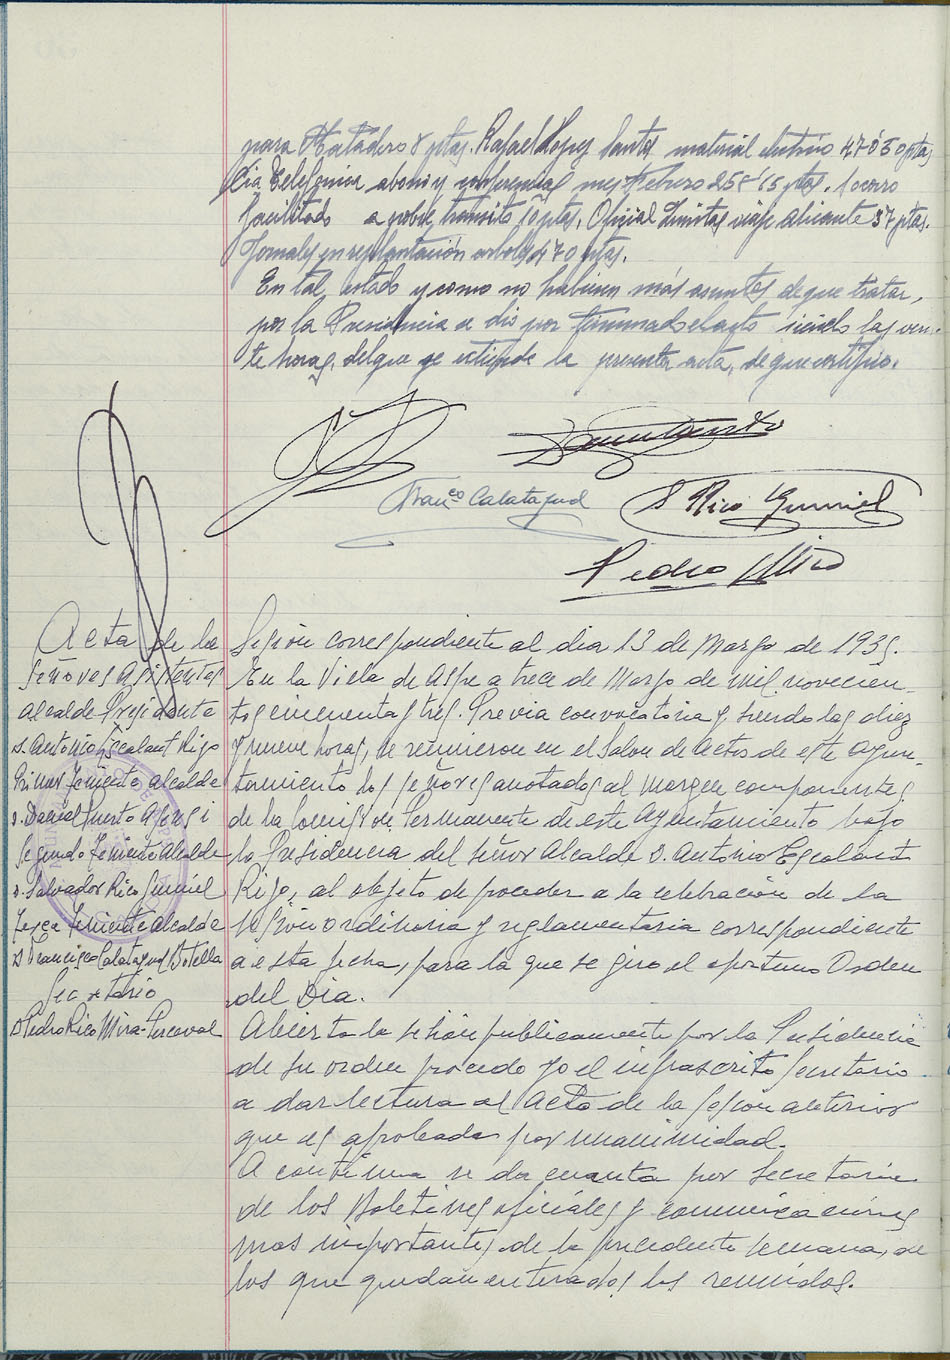 para Matadero 8 ptas. Rafael Lopez Santos material eléctrico 470'50 ptas
Cia Telefonica abono y conferencias mes Febrero 258'65 ptas. Socorro
facilitado a pobre transito 10 ptas. Oficial Quintas viaje alicante 37 ptas.
Jornales en replantación arboles 470 ptas.
En tal estado y como no habiesen más asuntos de que tratar,
por la Presidencia se dió por terminado el acto siendo las vein-
te horas, del que se extiende la presente acta, de que certifico.
Franco Calatayud
S Rico Gumiel
Pedro Mira
Acta de la
Señores Asistentes
Alcalde Presidente
D. Antonio Escalant Rizo
Primer Teniente alcalde
D. Daniel Puerto
Segundo Teniente Alcalde
D. Salvador Rico Gumiel
Tercer Teniente Alcalde
D Francisco Calatayud Botella
Secretario
D Pedro Rico Mira-Perceval
Sesion correspondiente al dia 13 de Marzo de 1953.
En la Villa de Aspe a trece de Marzo de mil novecien-
tos cincuenta y tres. Previa convocatoria y siendo las diez
y nueve horas, se reunieron en el Salon de Actos de este Ayun-
tamiento los señores anotados al margen componentes
de la Comision Permanente de este Ayuntamiento bajo
la Presidencia del Señor Alcalde D. Antonio Escalant
Rizo, al objeto de proceder a la celebración de la
sesion ordinaria y reglamentaria correspondiente
a esta fecha, para la que se giro el oportuno Orden
del Dia.
Abierta la sesion publicamente por la Presidencia
de su orden procedo yo el infrascrito Secretario
a dar lectura al Acta de la sesion anterior
que es aprobada por unanimidad.
A continua se da cuenta por Secretaria
de los Boletines oficiales y comunicaciones
mas importantes de la precedente semana, de
los que quedan enterados los reunidos.